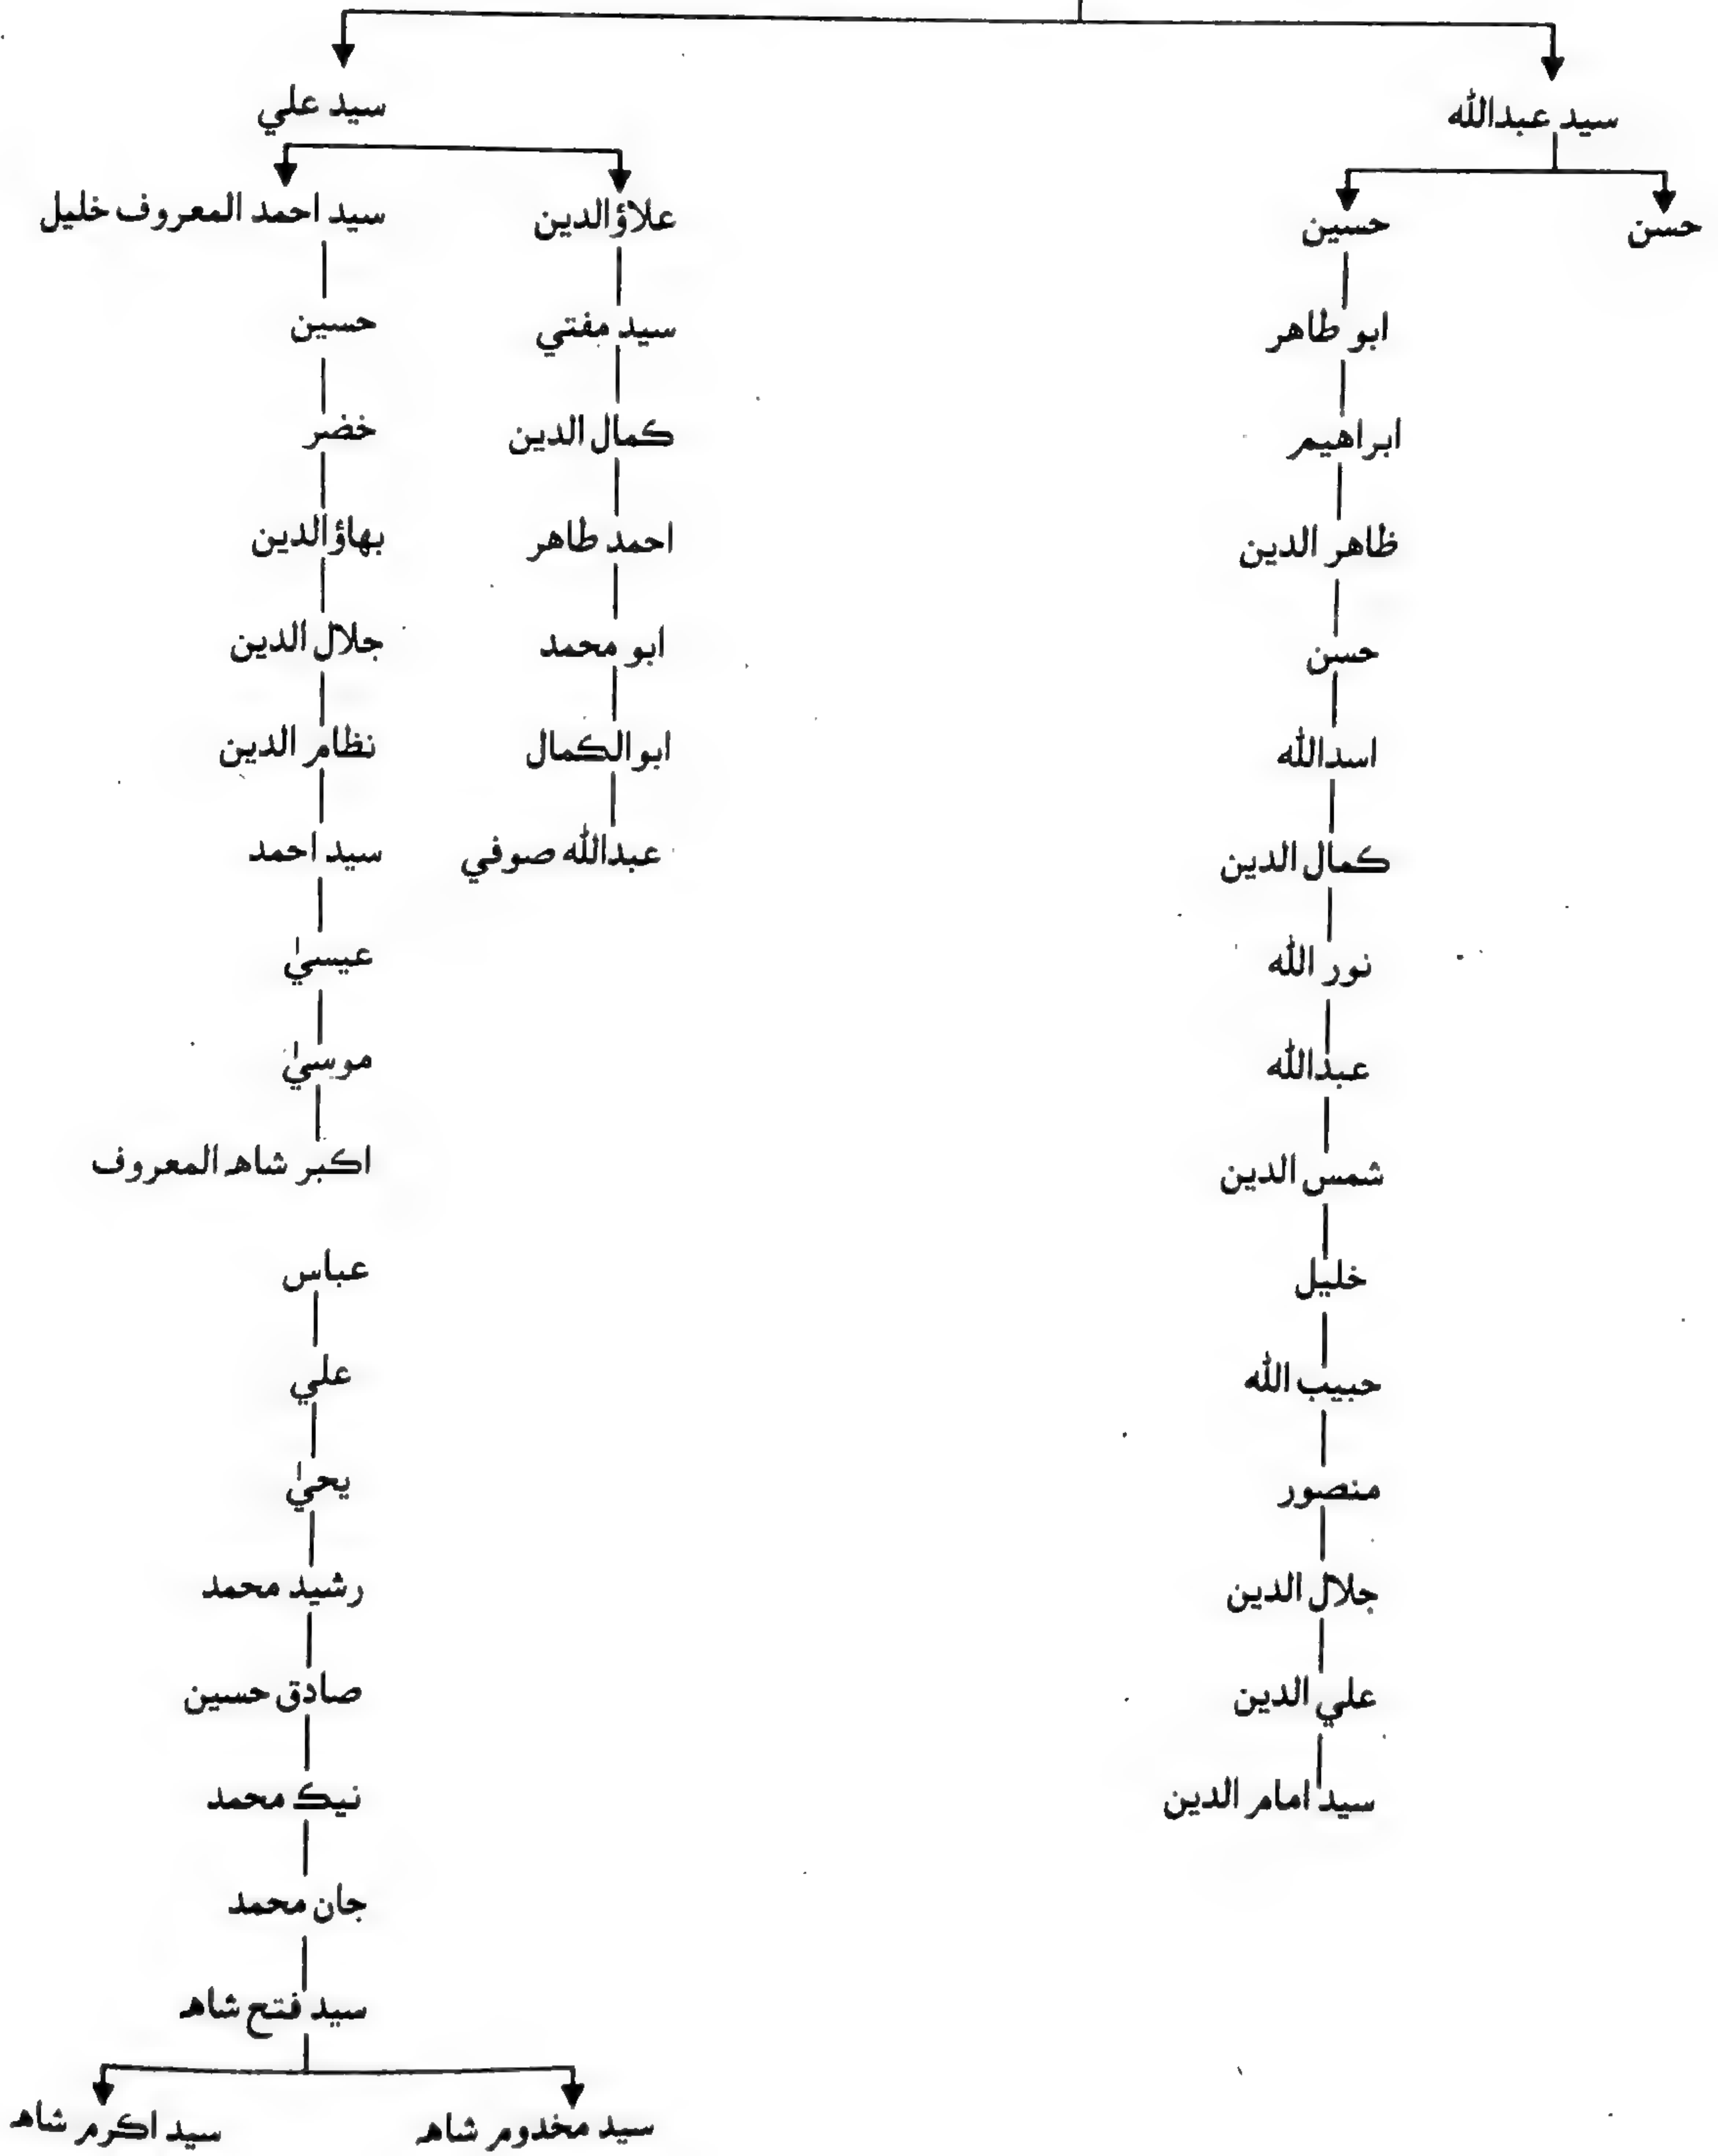 سيد عبدالله
حسن
حسين
ابو طاهر
ابراهيم
ظاهر الدين
حسن
اسدالله
كمال الدين
نور الله
عبدالله
شمس الدين
خليل
حبيب الله
منصور
جلال الدين
علي الدين
سيد امام الدين
سيد علي
علاؤالدين
سيد مفتي
كمال الدين
احمد طاهر
ابو محمد
ابوالكمال
عبدالله صوفي
سيد احمد المعروف خليل
حسين
خضر
بهاؤالدين
جلال الدين
نظام الدين
سيد احمد
عيسيٰ
موسيٰ
اكبر شاهه المعروف
عباس
علي
يحيٰ
رشيد محمد
صادق حسين
نيڪ محمد
جان محمد
سيد فتح شاهه
سيد مخدوم شاهه
سيد اكرم شاهه